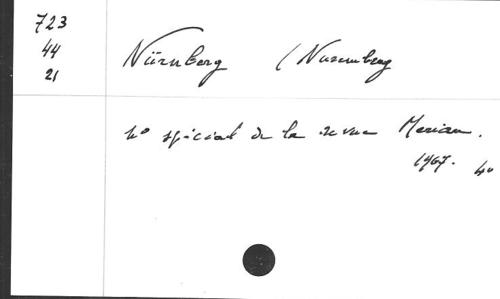 723
44
21
Nürnberg / Nuremberg
N° spécial de la revue Merian.
1967. 4°